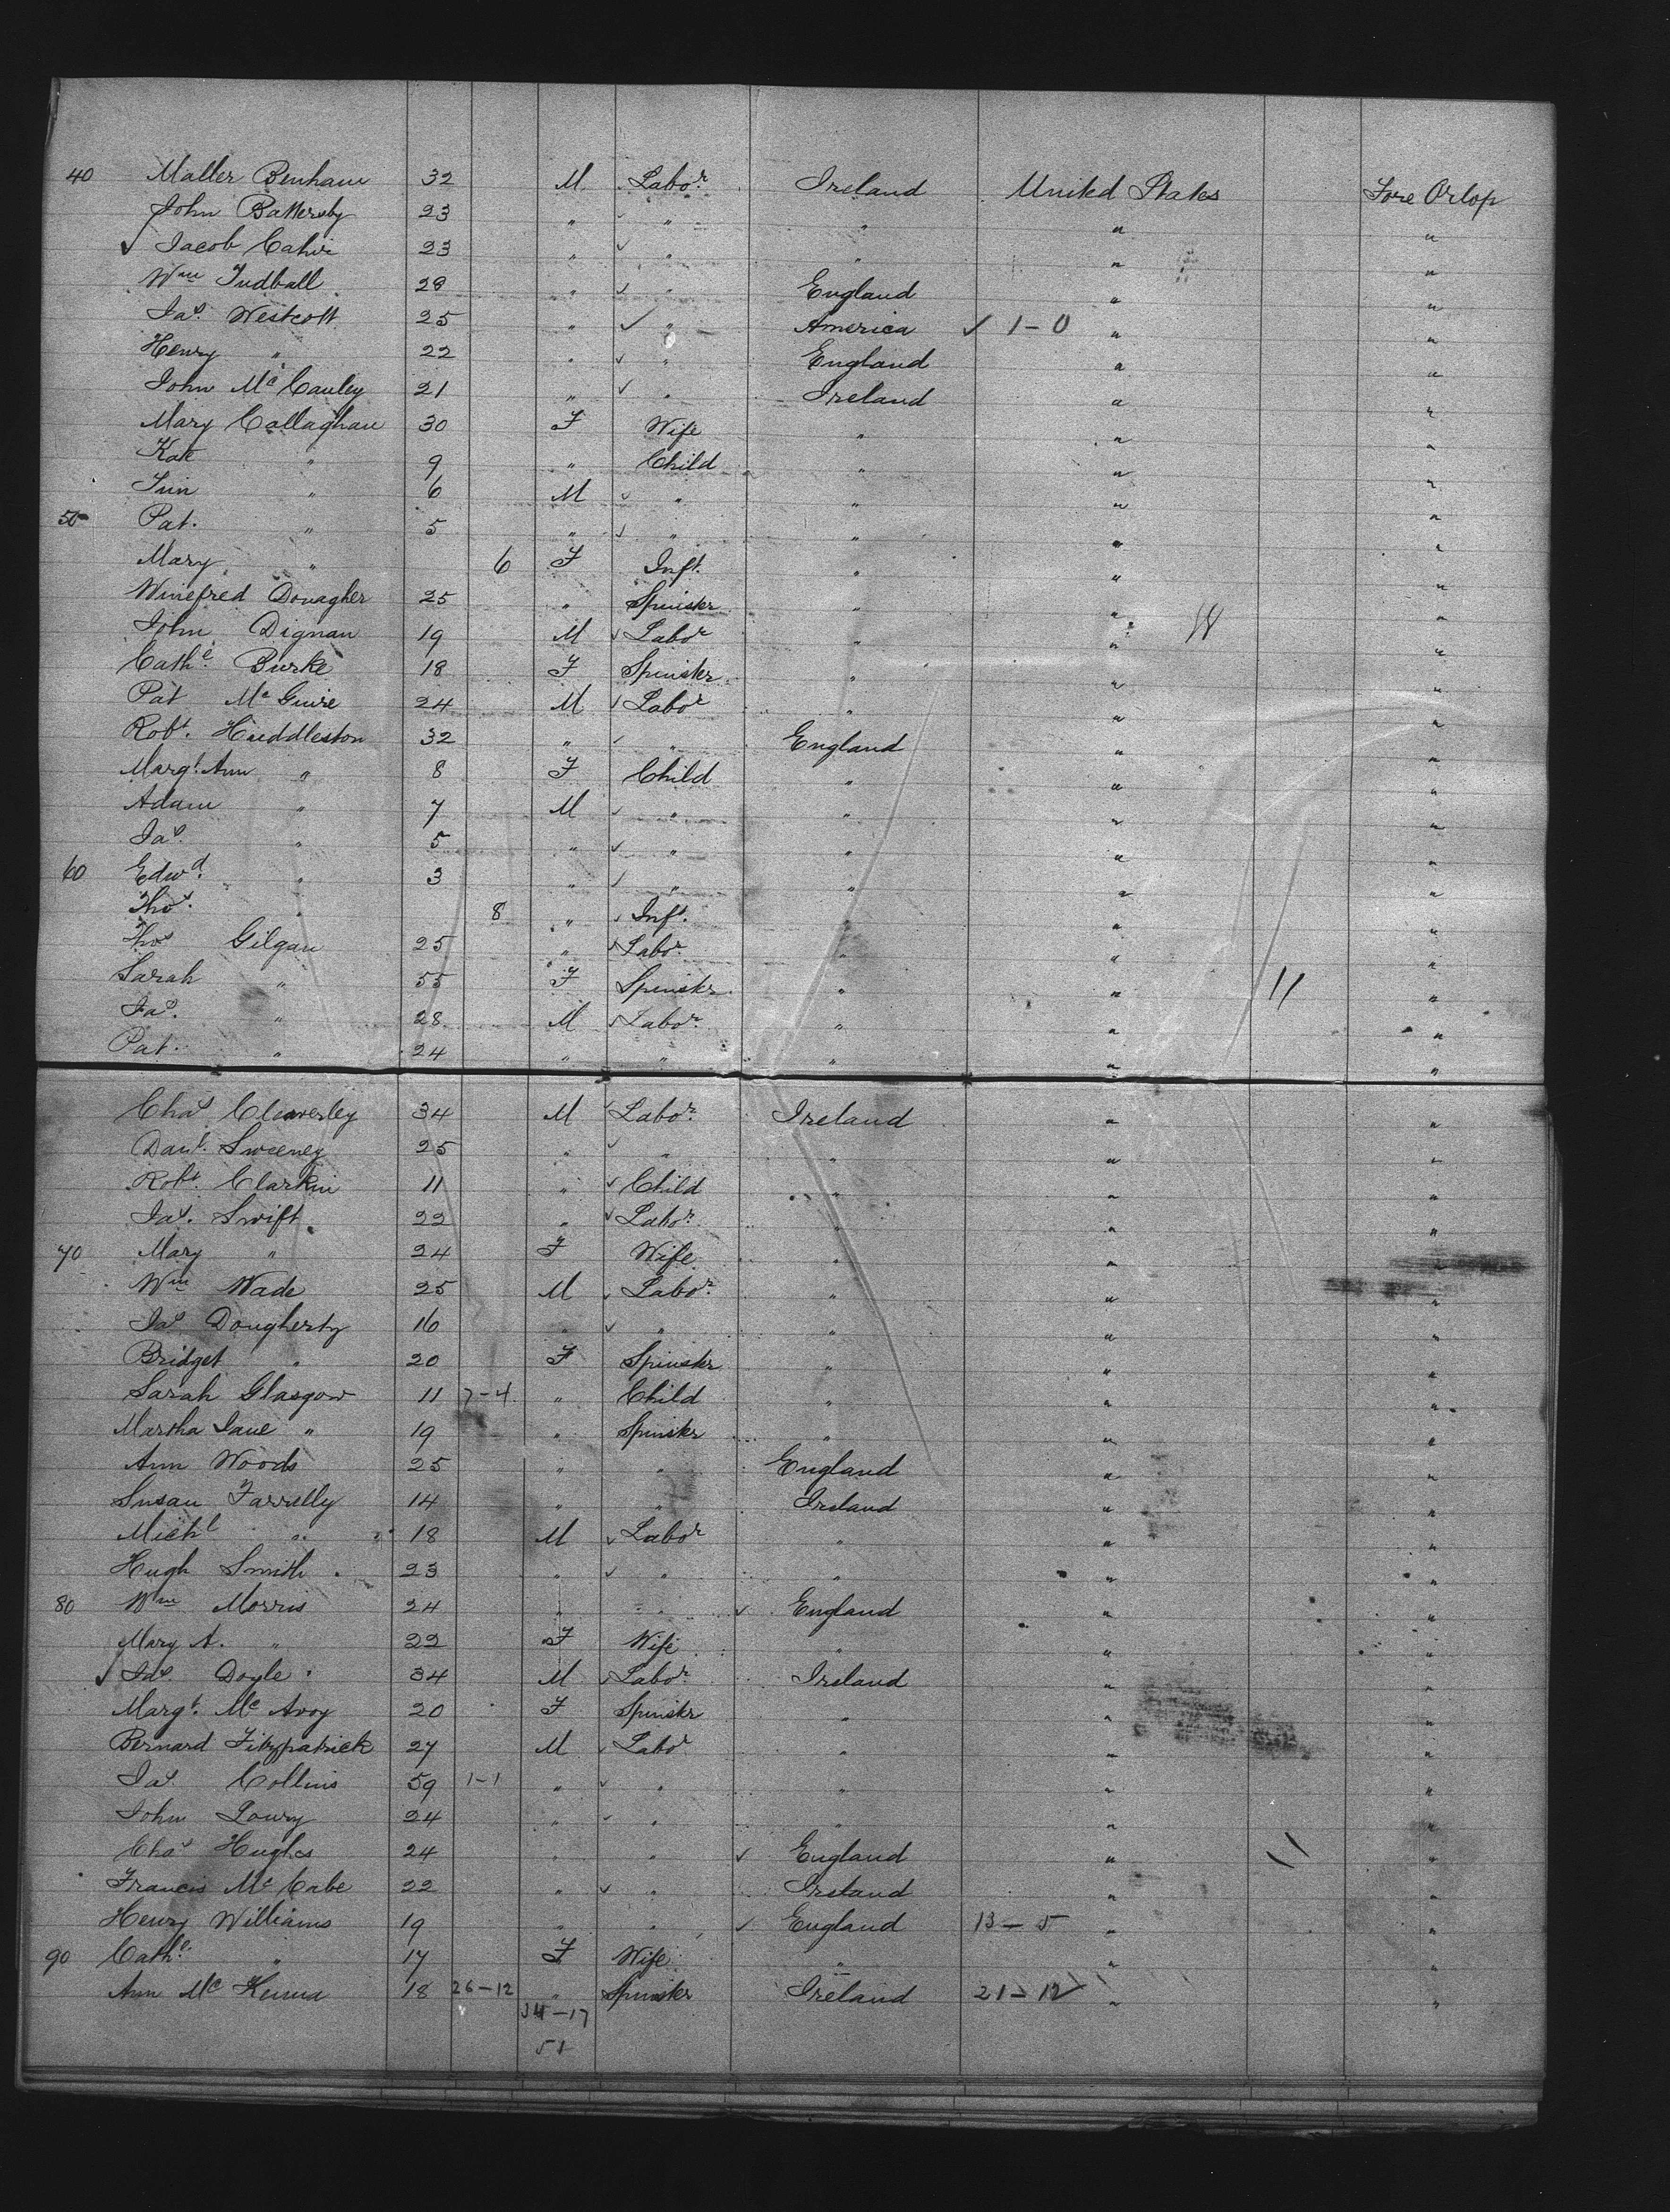 40 Maller Benham 32 M Labor Ireland United States Fore Orlop
John Battersby 23 " ✓ " " " "
✓ Jacob Cahir 23 " ✓ " " " "
Wm Tudball 28 " ✓ " England " "
Jas. Westcott 25 " ✓ " America ✓ 1-0 " "
Henry " 22 " ✓ " England " "
John McCauley 21 " ✓ " Ireland " "
Mary Callaghan 30 F Wife " " "
Kate " 9 " Child " " "
Jim " 6 M ✓ " " " "
50 Pat. " 5 " ✓ " " " "
Mary " 6 F Inft. " " "
Winefred Donagher 25 " Spinster " " "
John Dignan 19 M ✓ Labor " " "
Cathe. Burke 18 F Spinster " " "
Pat McGuire 24 M ✓ Labor " " "
Robt. Huddleston 32 " ✓ " England " "
Margt. Ann " 8 F Child " " "
Adam " 7 M ✓ " " " "
Jas. " 5 " ✓ " " " "
60 Edwd. " 3 " ✓ " " " "
Thos. " 8 " ✓ Inft. " " "
Thos Gilgan 25 " ✓ Labor " " "
Sarah " 55 F Spinster " " 11 "
Jas. " 28 M ✓ Labor " " "
Pat. " 24 " " " " "
Chas Claverley 34 M ✓ Labor Ireland " "
Danl. Sweeney 25 " ✓ " " " "
Robt. Clarkin 11 " ✓ Child " " "
Jas. Swift 22 " ✓ Labor " " "
70 Mary " 24 F Wife " " "
Wm Wade 25 M ✓ Labor " " "
Jas Dougherty 16 " ✓ " " " "
Bridget " 20 F Spinster " " "
Sarah Glasgow 11 7-4 " Child " " "
Martha Jane " 19 " Spinster " " "
Ann Woods 25 " " England " "
Susan Farrelly 14 " " Ireland " "
Michl " 18 M ✓ Labor " " "
Hugh Smith 23 " ✓ " " " "
80 Wm Morris 24 " " ✓ England " "
Mary A. " 22 F Wife " " "
✓ Jas Doyle 34 M ✓ Labor Ireland " "
Margt. McAvoy 20 F Spinster " " "
Bernard Fitzpatrick 27 M ✓ Labor " " "
Jas Collins 59 1-1 " ✓ " " " "
John Lowry 24 " ✓ " " " "
Chas Hughes 24 " " ✓ England " "
Francis McCabe 22 " ✓ " Ireland " "
Henry Williams 19 " " ✓ England 13-5 " "
90 Cathe. " 17 F Wife " " "
Ann McKenna 18 26-12 " Spinster Ireland 21-12 " "
34-17
51